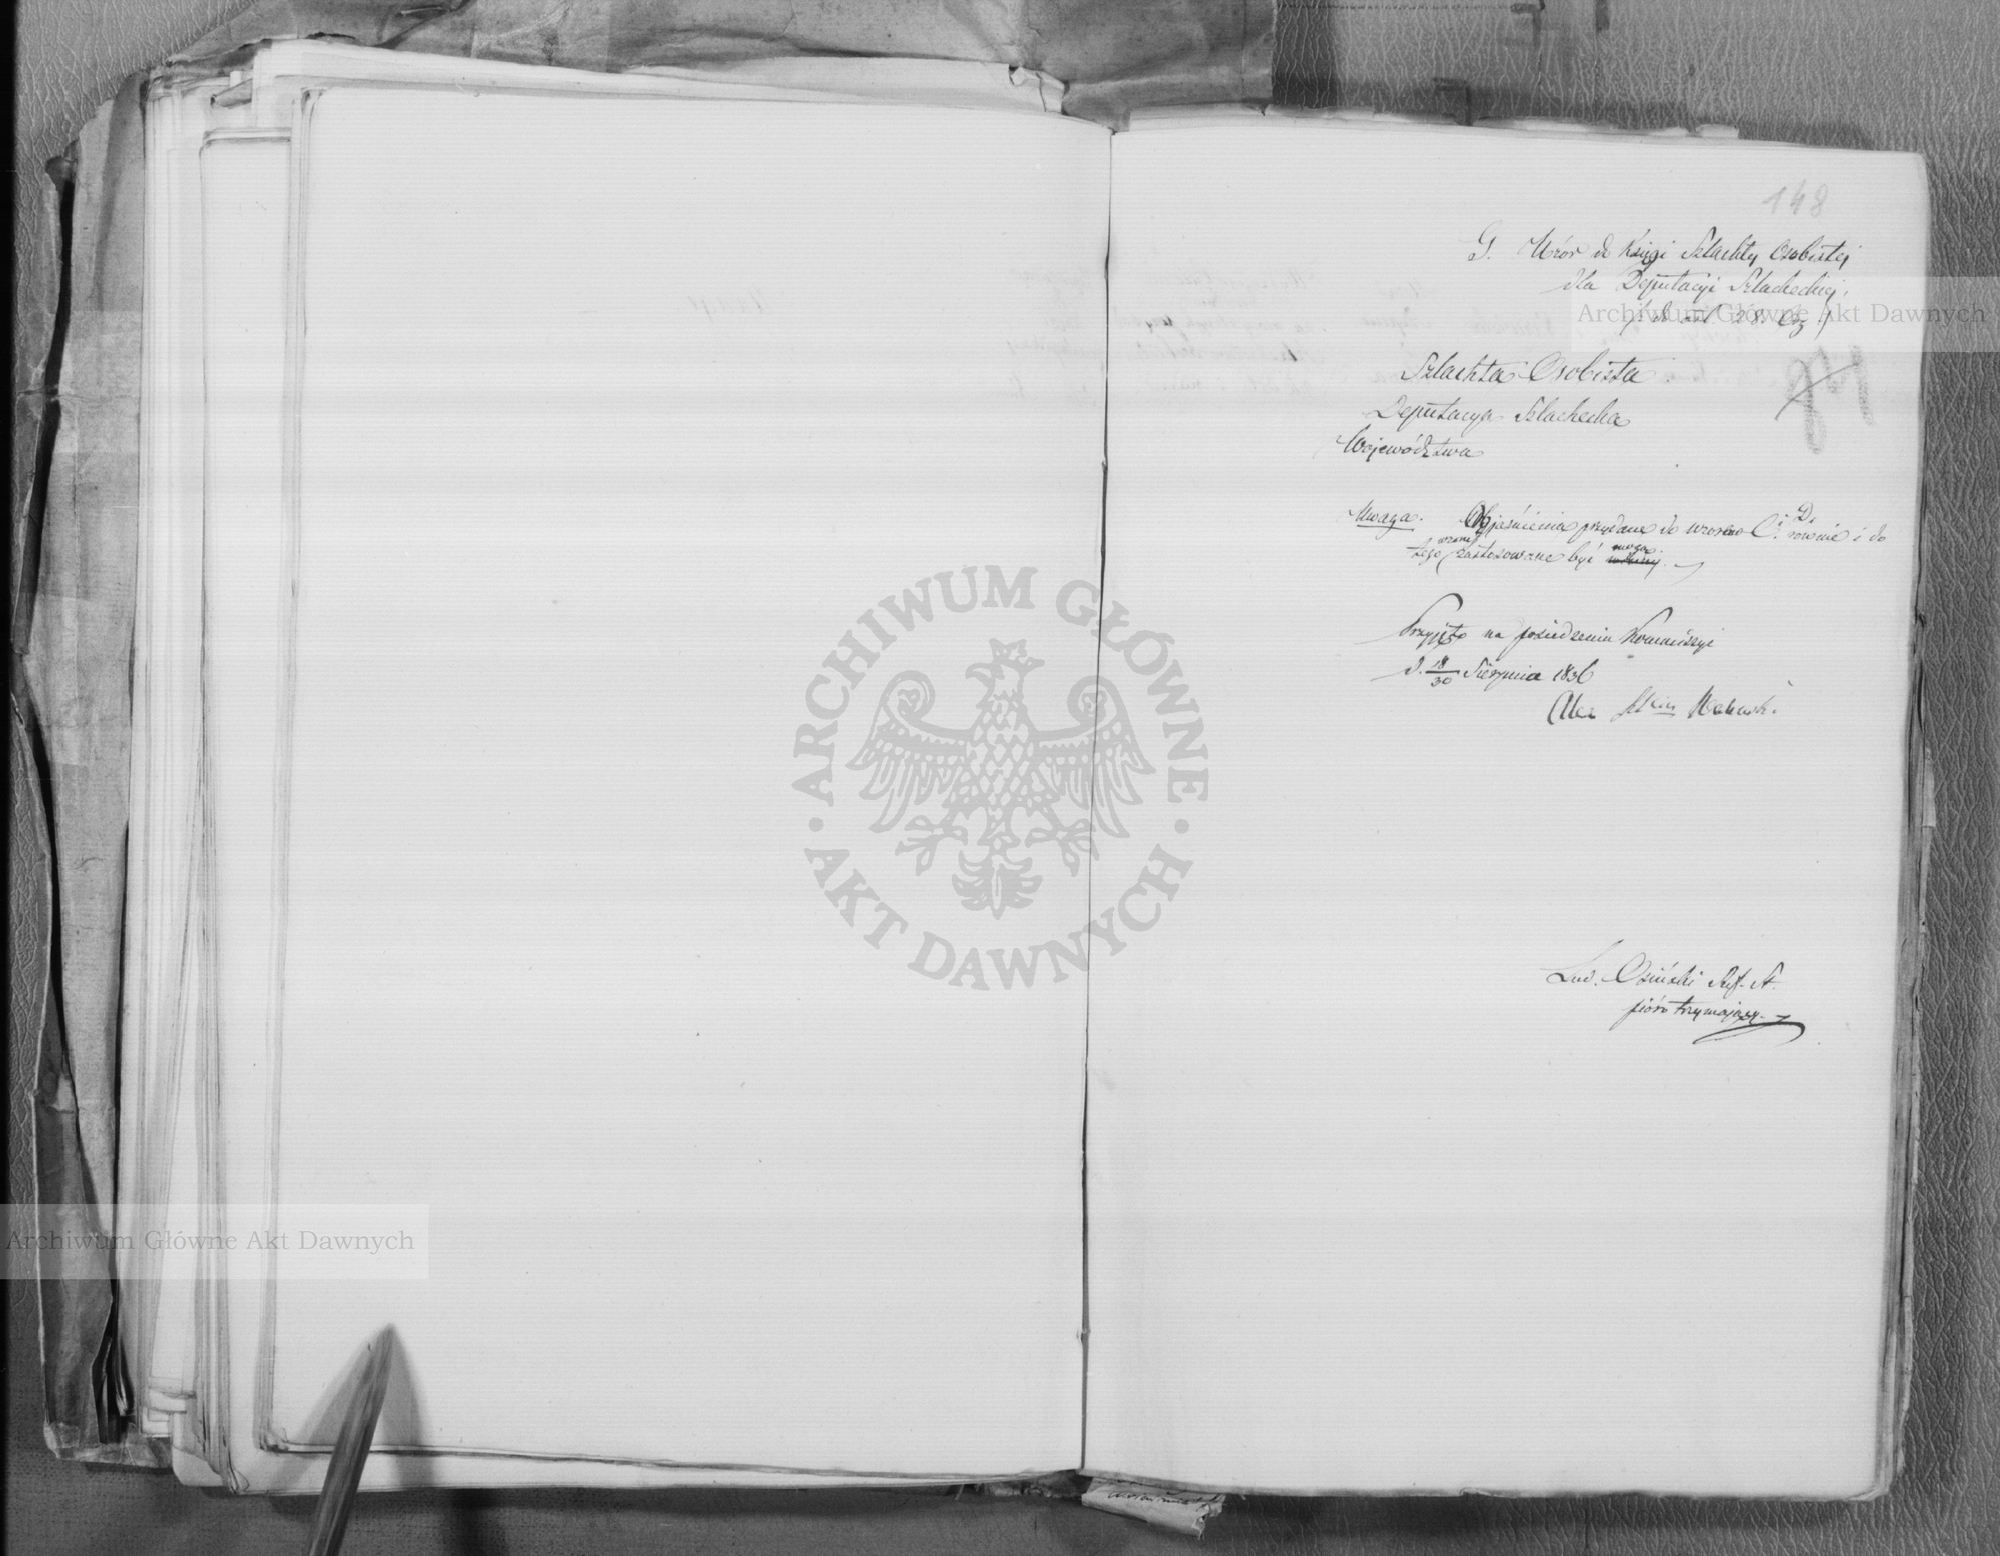 148
G. Wzór do Księgi Szlachty Osobistej
dla Deputacyi Szlacheckiej.
/: do art. 28. :/
Szlachta Osobista
Deputacya Szlachecka
Województwa
Uwaga. Objaśnienia przydane do wzorów C. i D. równie i do
tego wzoru zastosowane być mogą.
Przyjęto na posiedzeniu Kommissyi
d. 18/30 Sierpnia 1836
Alex
Lud. Osiński Ref. St.
pióro trzymający.
Archiwum Główne Akt Dawnych
ARCHIWUM GŁÓWNE
AKT DAWNYCH
Archiwum Główne Akt Dawnych